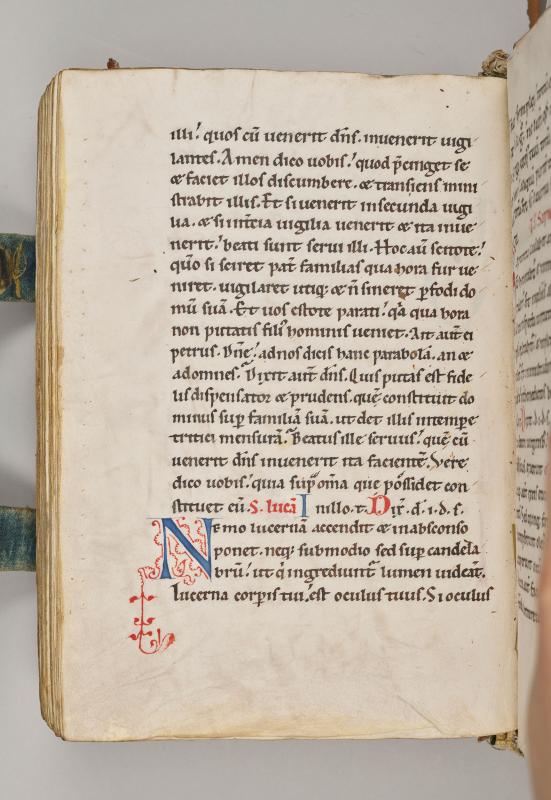 illi. quos cū uenerit dn̄s. inuenerit uigi
lantes. Amen dico uobis. quod p̄cinget se
& faciet illos discumbere. & transiens mini
strabit illis. Et si uenerit in secunda uigi
lia. & si in t̄cia uigilia uenerit & ita inue
nerit. beati sunt serui illi. Hoc aū scitote.
quō si sciret pat̄ familias qua hora fur ue
niret. uigilaret utiq; & n̄ sineret p̄fodi do
mū suā. Et uos estote parati. q̄a qua hora
non putatis fili' hominis ueniet. Ait aūt ei
petrus. Dn̄e. ad nos dicis hanc parabolā. an &
ad omnes. Dixit aūt dn̄s. Quis putas est fide
lis dispensator & prudens. quē constituit do
minus sup̄ familiā suā. ut det illis in tempe
tritici mensurā. Beatus ille seruus. quē cū
uenerit dn̄s inuenerit ita facientē. Vere
dico uobis. quia sup̄ om̄a que possidet con
stituet eū. S. lucā In illo. t. Dix̄. d. i. d. s.
Nemo lucernā accendit & in absconso
ponet. neq; sub modio sed sup̄ candela
brū. ut q̄ ingrediunt̄ lumen uideāt.
Lucerna corp̄is tui. est oculus tuus. Si oculus